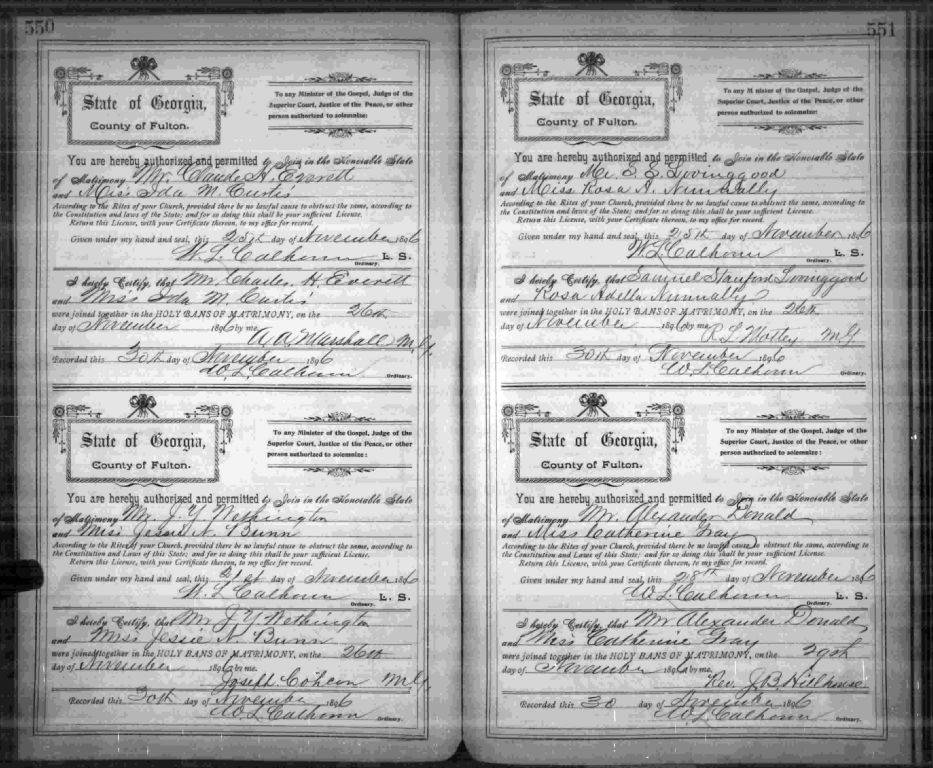 550
State of Georgia,
County of Fulton.
To any Minister of the Gospel, Judge of the
Superior Court, Justice of the Peace, or other
person authorized to solemnize:
You are hereby authorized and permitted to Join in the Honorable State
of Matrimony Mr. Claude H. Everett
and Miss Ida M. Curtis
According to the Rites of your Church, provided there be no lawful cause to obstruct the same, according to
the Constitution and laws of the State; and for so doing this shall be your sufficient License.
Return this License, with your Certificate thereon, to my office for record.
Given under my hand and seal, this 25th day of November 1896
W. L. Calhoun L. S.
Ordinary.
I hereby Certify, that Mr. Charles H. Everett
and Miss Ida M. Curtis
were joined together in the HOLY BANS OF MATRIMONY, on the 26th
day of November 1896 by me.
A. A. Marshall M.G.
Recorded this 30th day of November 1896
W. L. Calhoun
Ordinary.
State of Georgia,
County of Fulton.
To any Minister of the Gospel, Judge of the
Superior Court, Justice of the Peace, or other
person authorized to solemnize:
You are hereby authorized and permitted to Join in the Honorable State
of Matrimony Mr. J. Y. Wethington
and Miss Jessie N. Bunn
According to the Rites of your Church, provided there be no lawful cause to obstruct the same, according to
the Constitution and Laws of this State; and for so doing this shall be your sufficient License.
Return this License, with your Certificate thereon, to my office for record.
Given under my hand and seal, this 21st day of November 1896
W. L. Calhoun L. S.
Ordinary.
I hereby Certify, that Mr J. Y. Wethington
and Miss Jessie N. Bunn
were joined together in the HOLY BANS OF MATRIMONY, on the 26th
day of November 1896 by me.
Joseph M.G.
Recorded this 30th day of November 1896
W L Calhoun
Ordinary.
551
State of Georgia,
County of Fulton.
To any Minister of the Gospel, Judge of the
Superior Court, Justice of the Peace, or other
person authorized to solemnize:
You are hereby authorized and permitted to Join in the Honorable State
of Matrimony Mr. S. S. Lovinggood
and Miss Rosa A. Nunnally
According to the Rites of your Church, provided there be no lawful cause to obstruct the same, according to
the Constitution and laws of the State; and for so doing this shall be your sufficient License.
Return this License, with your Certificate thereon, to my office for record.
Given under my hand and seal, this 25th day of November 1896
W. L. Calhoun L. S.
Ordinary.
I hereby Certify, that Samuel Lovinggood
and Rosa Adella Nunnally
were joined together in the HOLY BANS OF MATRIMONY, on the 26th
day of November 1896 by me.
R. L. Motley M.G.
Recorded this 30th day of November 1896
W. L. Calhoun
Ordinary.
State of Georgia,
County of Fulton.
To any Minister of the Gospel, Judge of the
Superior Court, Justice of the Peace, or other
person authorized to solemnize:
You are hereby authorized and permitted to Join in the Honorable State
of Matrimony Mr. Alexander Donald
and Miss Catherine Gray
According to the Rites of your Church, provided there be no lawful cause to obstruct the same, according to
the Constitution and Laws of this State; and for so doing this shall be your sufficient License.
Return this License, with your Certificate thereon, to my office for record.
Given under my hand and seal, this 28th day of November 1896
W L Calhoun L. S.
Ordinary.
I hereby Certify, that Mr Alexander Donald
and Miss Catherine Gray
were joined together in the HOLY BANS OF MATRIMONY, on the 29th
day of November 1896 by me.
Rev. J. B. Hillhouse
Recorded this 30 day of November 1896
W L Calhoun
Ordinary.